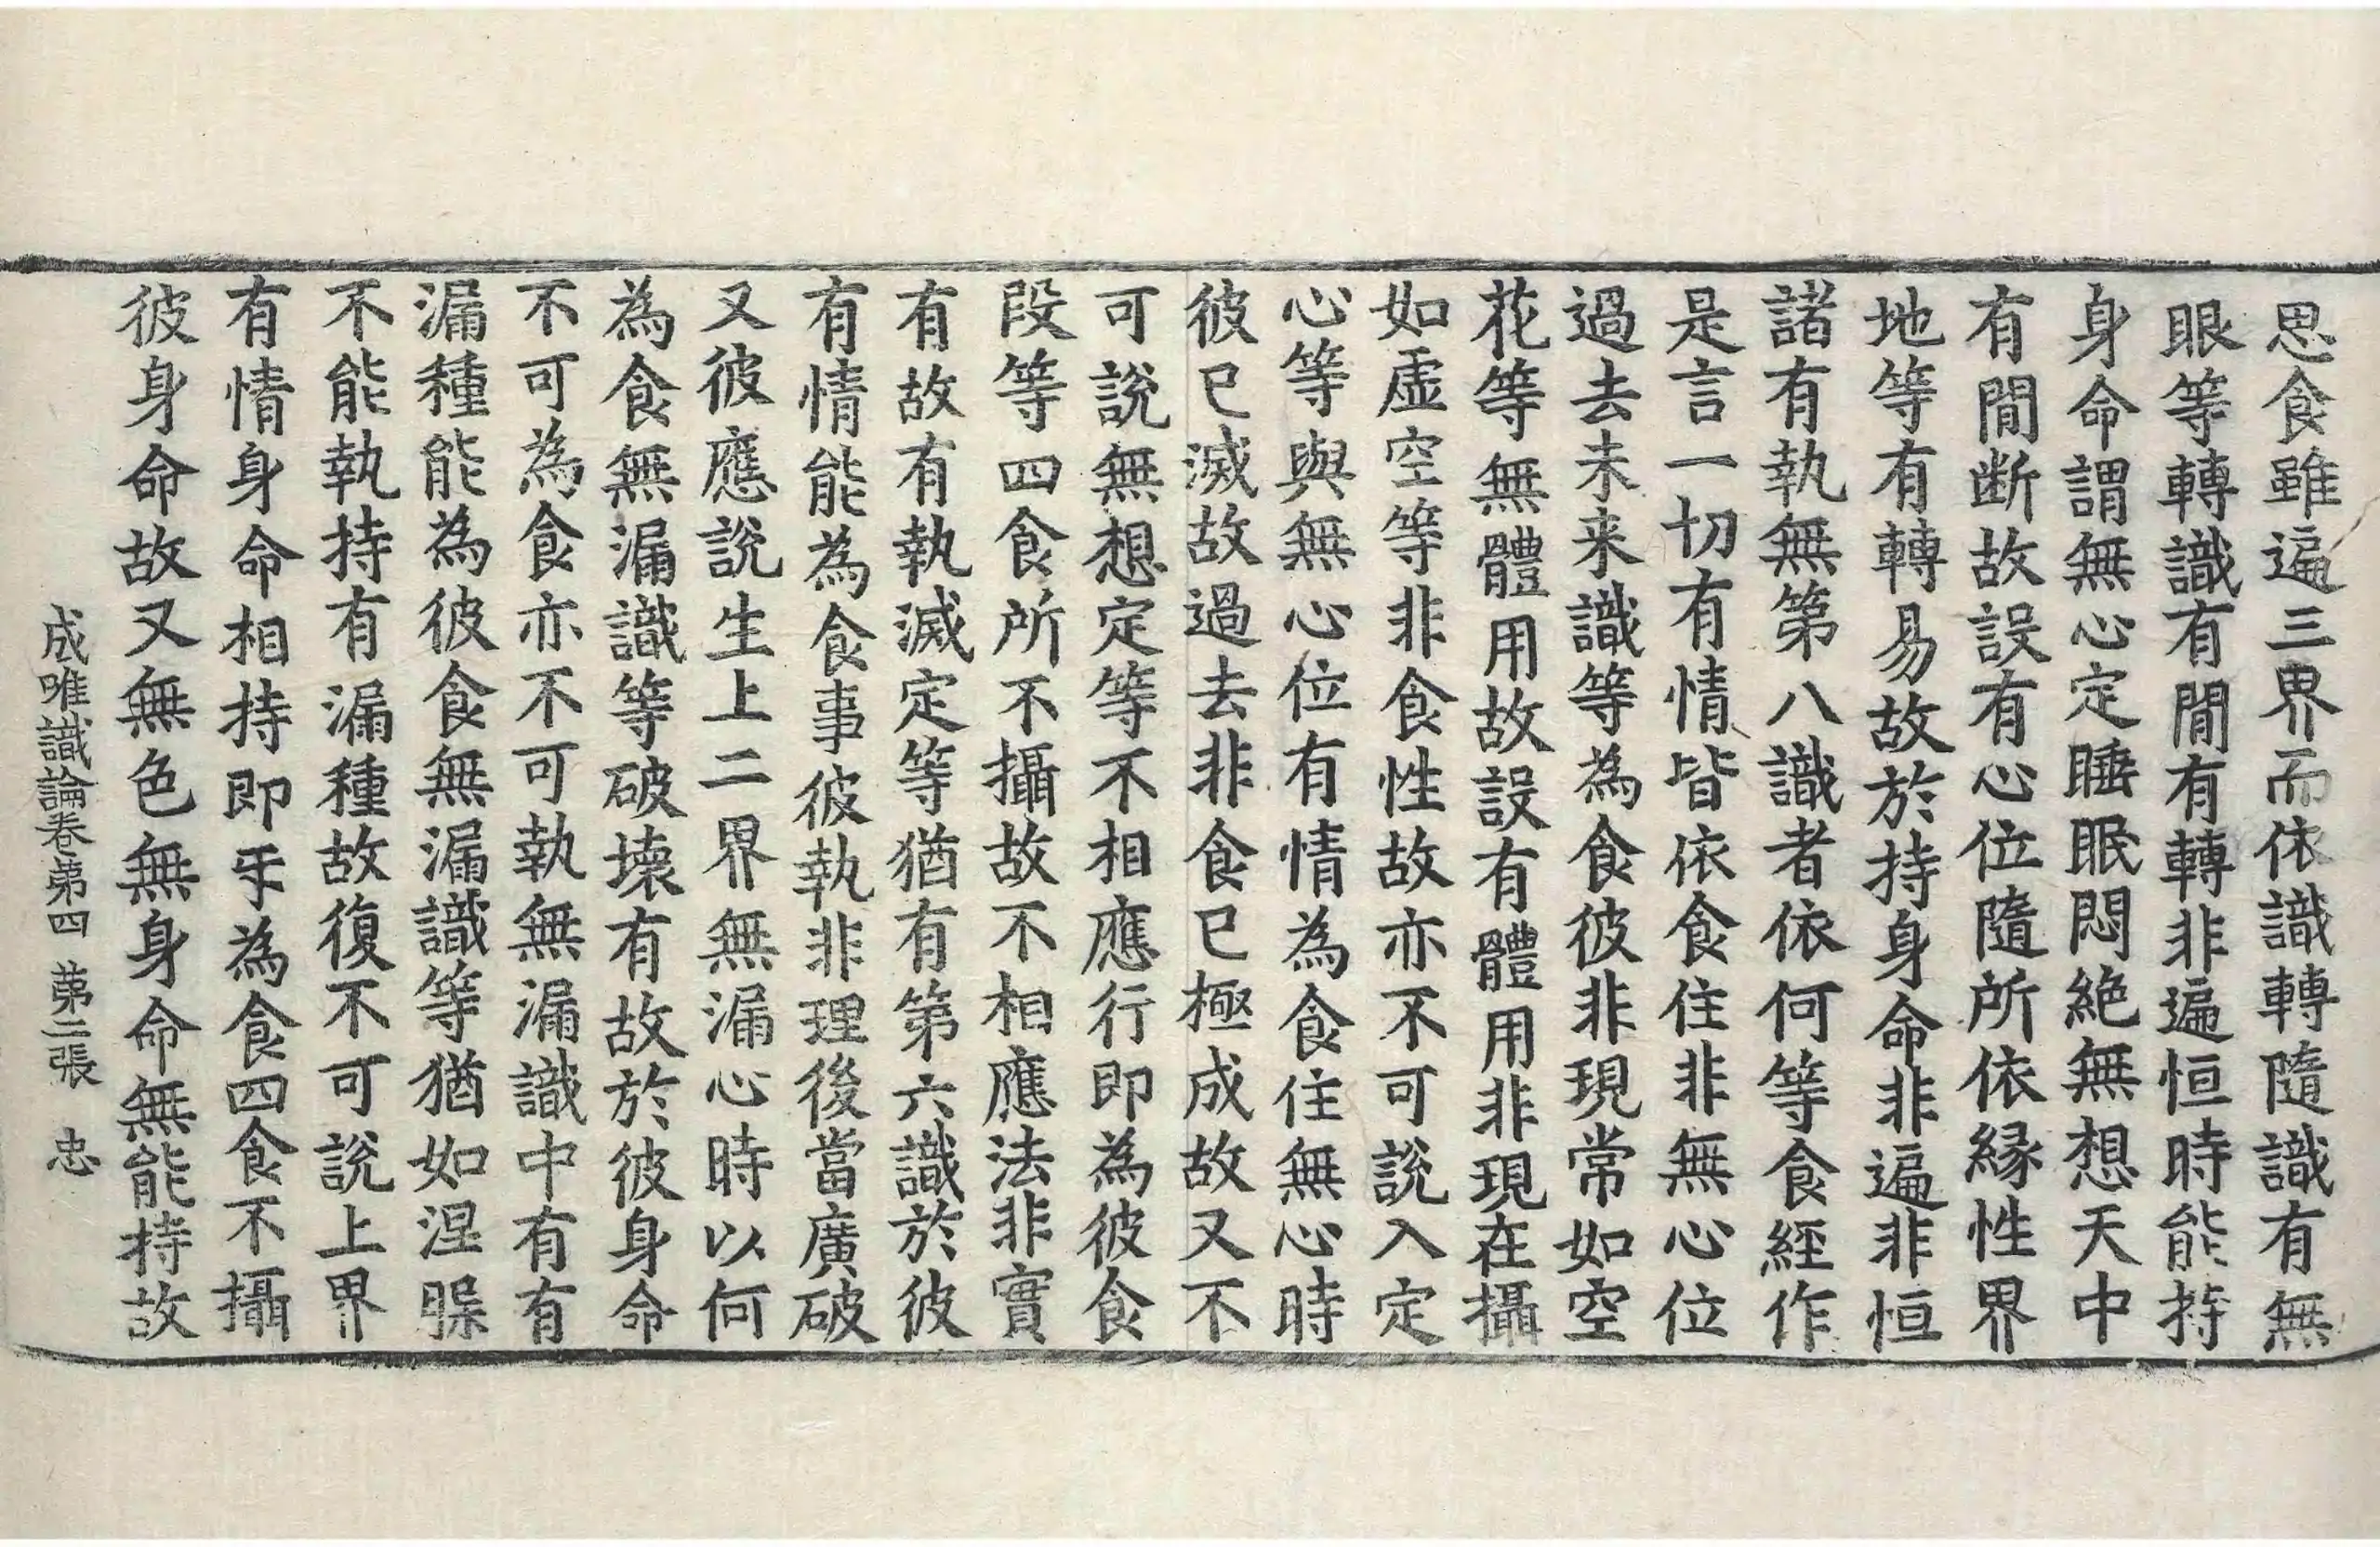 思食雖遍三界而依識轉隨識有無
眼等轉識有間有轉非遍恒時能持
身命謂無心定睡眠悶絶無想天中
有間断故設有心位隨所依緣性界
地等有轉易故於持身命非遍非恒
諸有執無第八識者依何等食經作
是言一切有情皆依食住非無心位
過去未来識等為食彼非現常如空
花等無體用故設有體用非現在攝
如虛空等非食性故亦不可說入定
心等與無心位有情為食住無心時
彼已滅故過去非食已極成故又不
可說無想定等不相應行即為彼食
段等四食所不攝故不相應法非實
有故有執滅定等猶有第六識於彼
有情能為食事彼執非理後當廣破
又彼應說生上二界無漏心時以何
為食無漏識等破壞有故於彼身命
不可為食亦不可執無漏識中有有
漏種能為彼食無漏識等猶如涅槃
不能執持有漏種故復不可說上界
有情身命相持即㸦為食四食不攝
彼身命故又無色無身命無能持故
成唯識論卷第四 第二張 忠